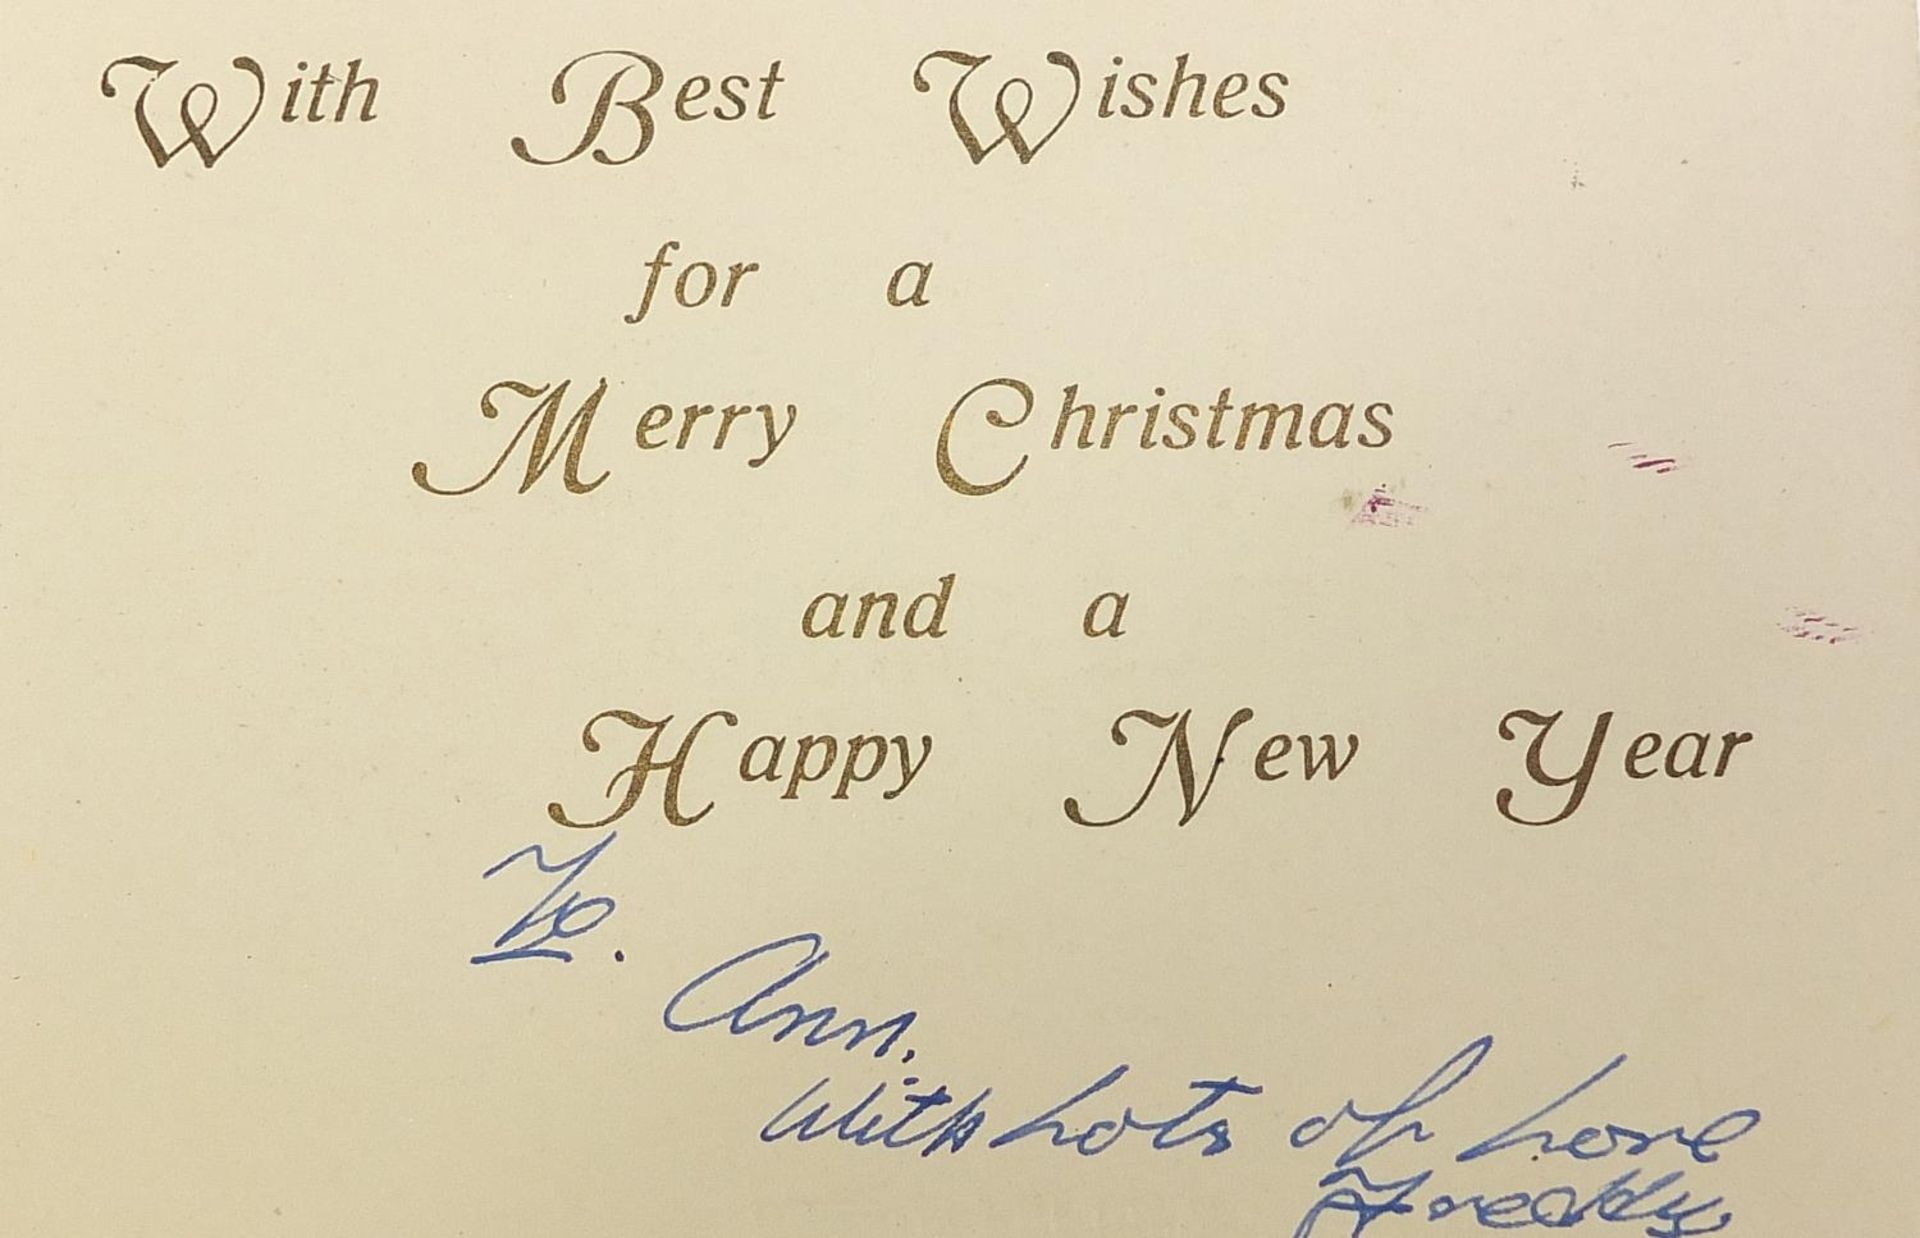 With Best Wishes
for a
Merry Christmas
and a
Happy New Year
To.
Ann.
With Lots of Love
Freddy